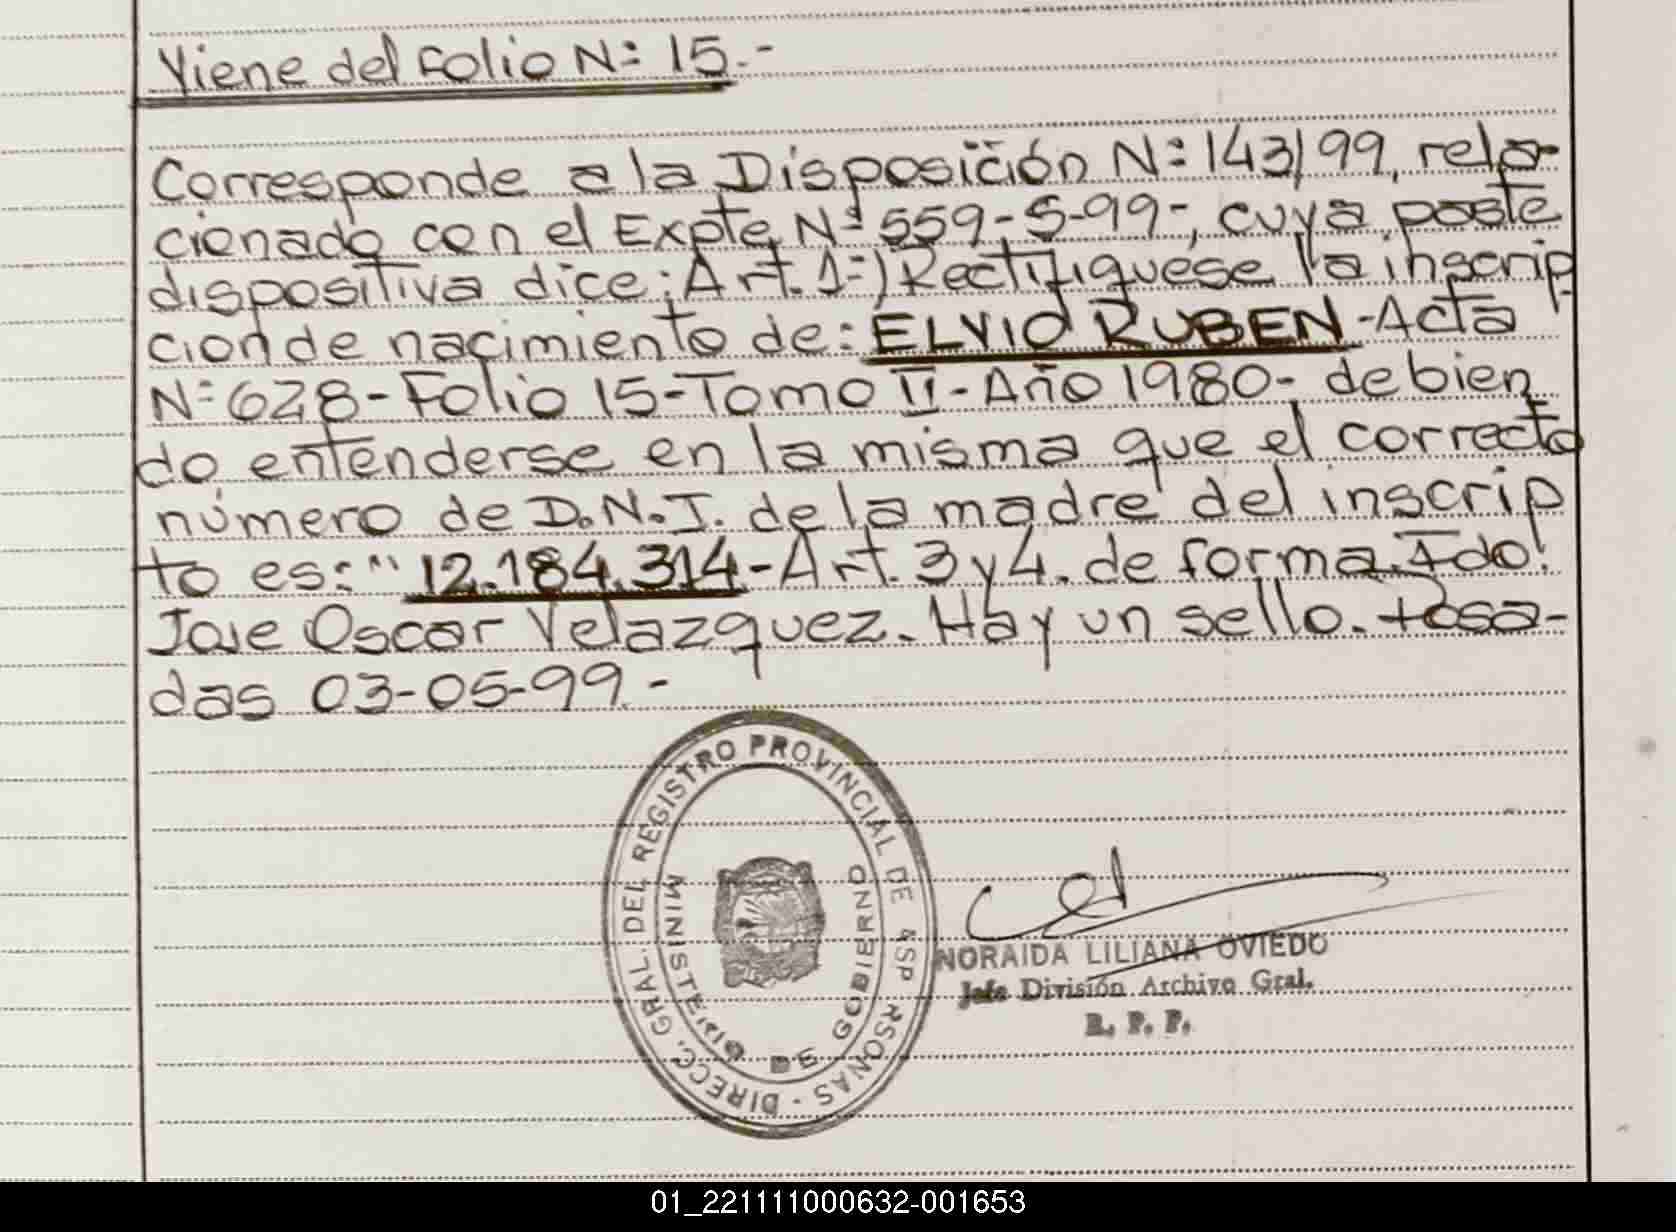 Viene del Folio Nº 15.-
Corresponde a la Disposición Nº 143/99, rela-
cionado con el Expte Nº 559-S-99-, cuya paste
dispositiva dice: Art. 1º) Rectifiquese la inscrip-
cion de nacimiento de: ELVIO RUBEN-Acta
Nº 628-Folio 15-Tomo II-Año 1980-debien
do entenderse en la misma que el correcto
número de D.N.I. de la madre del inscrip
to es: "12.184.314-Art. 3 y 4. de forma. Fdo:
Jose Oscar Velazquez. Hay un sello. Posa-
das 03-05-99.-
DIRECC. GRAL. DEL REGISTRO PROVINCIAL DE
MINISTERIO DE GOBIERNO
NORAIDA LILIANA OVIEDO
Jefe División Archivo Gral.
R. P. P.
01_221111000632-001653